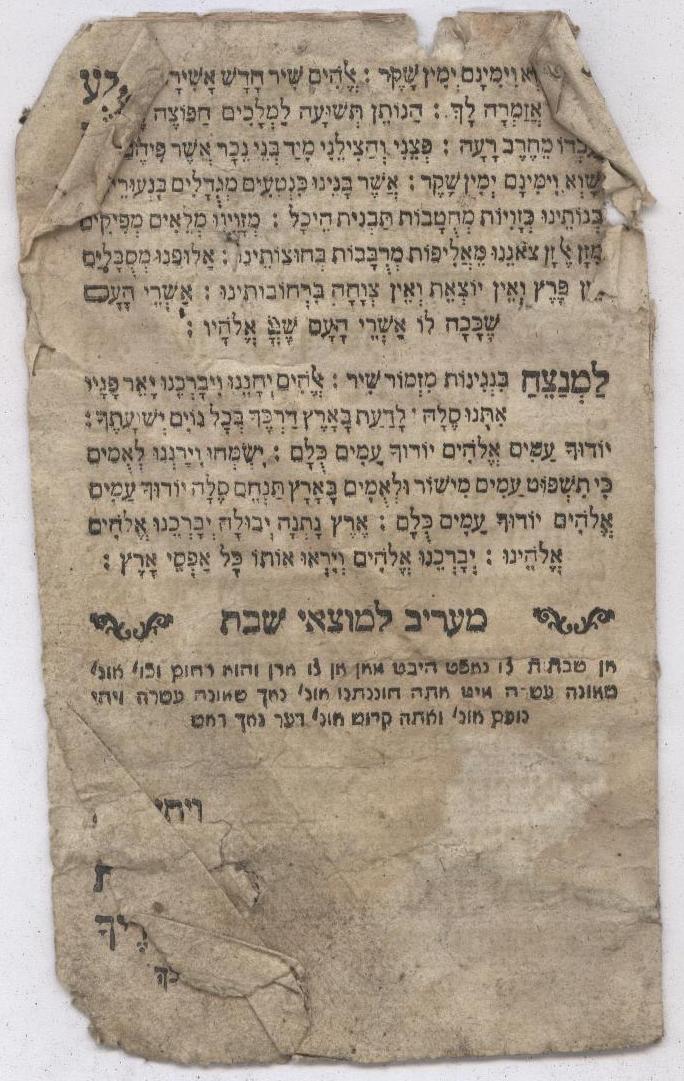 וִימִינָם יְמִין שָׁקֶר : אֱלֹהִים שִׁיר חָדָשׁ אָשִׁירָ
אֲזַמְּרָה לָּךְ : הַנּוֹתֵן תְּשׁוּעָה לַמְּלָכִים הַפּוֹצֶה
מֵחֶרֶב רָעָה : פְּצֵנִי וְהַצִּילֵנִי מִיַּד בְּנֵי נֵכָר אֲשֶׁר פִּיהֶם
שָׁוְא וִימִינָם יְמִין שָׁקֶר : אֲשֶׁר בָּנֵינוּ כִּנְטִעִים מְגֻדָּלִים בִּנְעוּרֵי
בְּנוֹתֵינוּ כְּזָוִיּוֹת מְחֻטָּבוֹת תַּבְנִית הֵיכָל : מְזָוֵינוּ מְלֵאִים מְפִיקִים
מִזַּן אֶל זַן צֹאנֵנוּ מַאֲלִיפוֹת מְרֻבָּבוֹת בְּחוּצוֹתֵינוּ : אַלּוּפֵנוּ מְסֻבָּלִים
פֶּרֶץ וְאֵין יוֹצֵאת וְאֵין צְוָחָה בִּרְחוֹבוֹתֵינוּ : אַשְׁרֵי הָעָם
שֶׁכָּכָה לּוֹ אַשְׁרֵי הָעָם אֱלֹהָיו :
לַמְנַצֵּחַ בִּנְגִינוֹת מִזְמוֹר שִׁיר : אֱלֹהִים יְחָנֵּנוּ וִיבָרְכֵנוּ יָאֵר פָּנָיו
אִתָּנוּ סֶלָה : לָדַעַת בָּאָרֶץ דַּרְכֶּךָ בְּכָל גּוֹיִם יְשׁוּעָתֶךָ :
יוֹדוּךָ עַמִּים אֱלֹהִים יוֹדוּךָ עַמִּים כֻּלָּם : יִשְׂמְחוּ וִירַנְּנוּ לְאֻמִּים
כִּי תִשְׁפּוֹט עַמִּים מִישׁוֹר וּלְאֻמִּים בָּאָרֶץ תַּנְחֵם סֶלָה יוֹדוּךָ עַמִּים
אֱלֹהִים יוֹדוּךָ עַמִּים כֻּלָּם : אֶרֶץ נָתְנָה יְבוּלָהּ יְבָרְכֵנוּ אֱלֹהִים
אֱלֹהֵינוּ : יְבָרְכֵנוּ אֱלֹהִים וְיִירְאוּ אוֹתוֹ כָּל אַפְסֵי אָרֶץ :
מעריב למוצאי שבת
והוא רחום וכו׳
שמונה אתה חוננתנו נאך שמונה עשרה ויהי
נועם ואתה קדוש דער נאך
ויהי